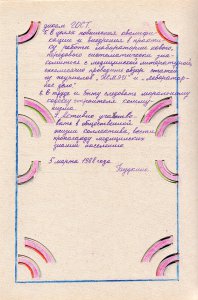 циям ГОСТ.
5. В целях повышения квалифи-
кации и внедрения в практи-
ку работы лаборатории нового,
повседневно систематически зна-
комиться с медицинской литературой,
ежемесячно проводить обзор статей
из журналов и "Лаборатор-
ное дело".
6. В труде и быту следовать моральному
кодексу строителя комму-
низма.
7. Активно участво-
вать в общественной
жизни коллектива, вести
пропаганду медицинских
знаний населению.
5 марта 1988 года